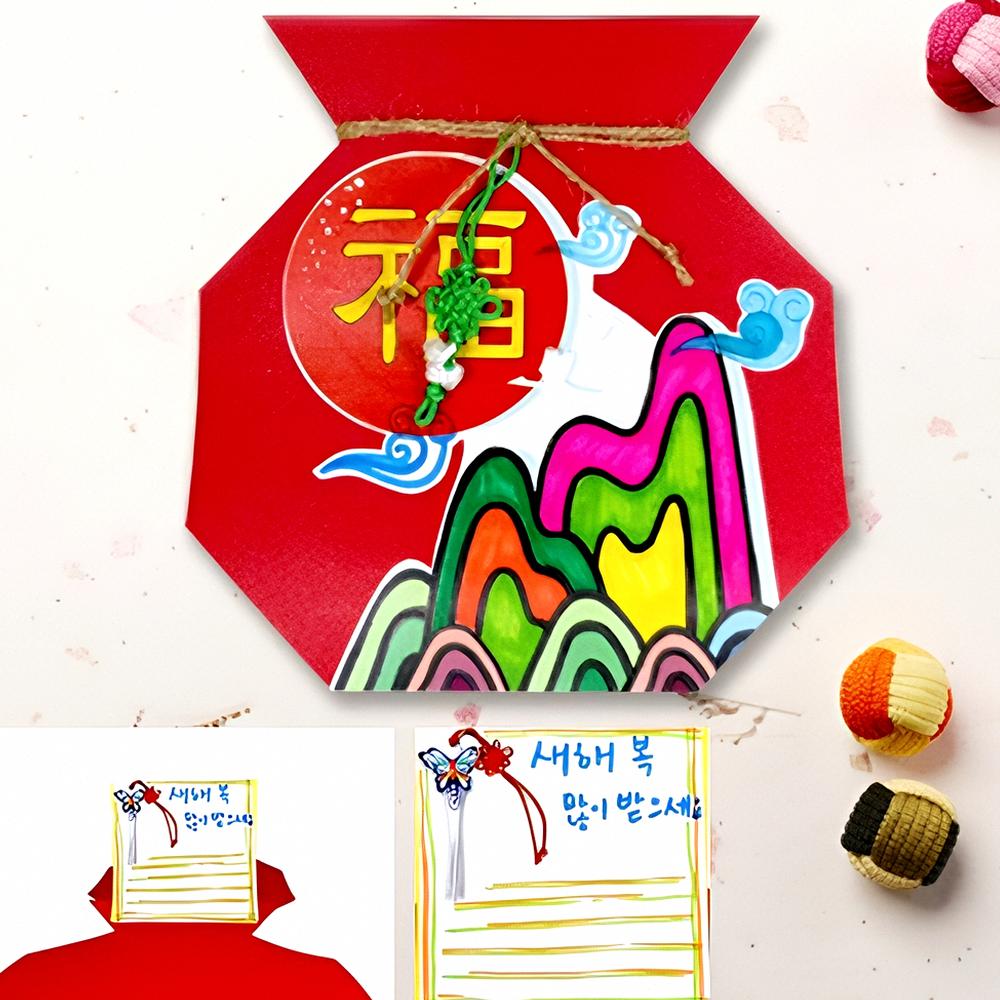 福
새해 복
많이 받으세요
새해 복
많이 받으세요